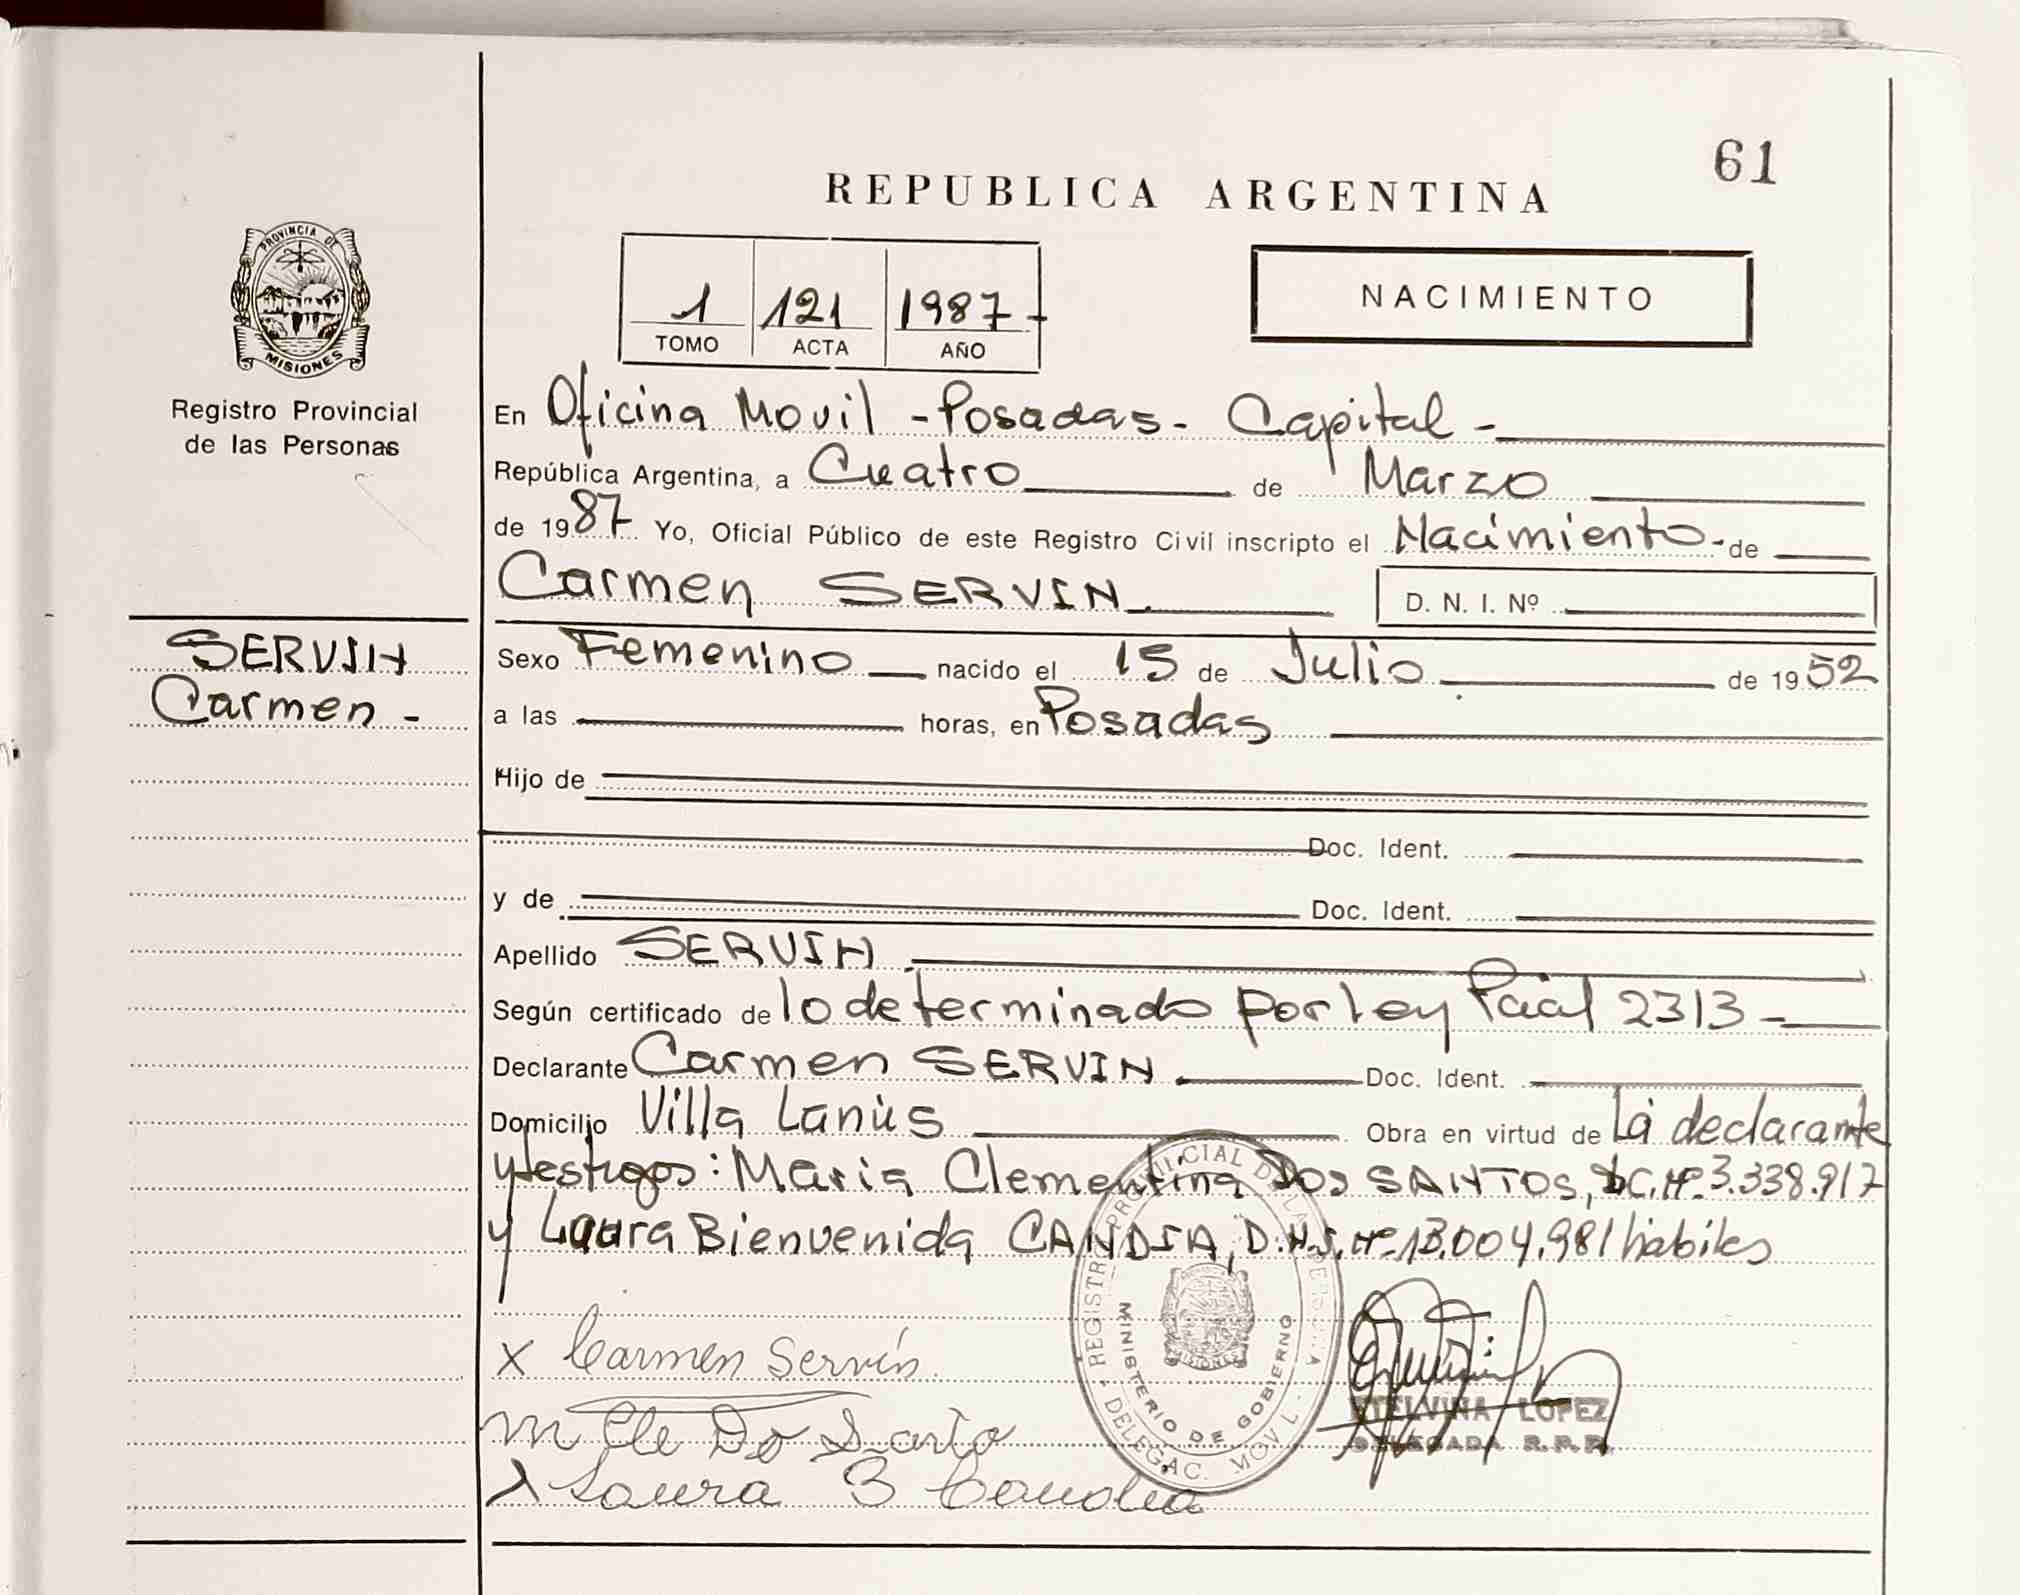 61
REPUBLICA ARGENTINA
PROVINCIA DE
MISIONES
Registro Provincial
de las Personas
1 121 1987-
TOMO ACTA AÑO
NACIMIENTO
En Oficina Movil - Posadas - Capital -
República Argentina, a Cuatro de Marzo
de 1987 Yo, Oficial Público de este Registro Civil inscripto el Nacimiento - de
Carmen SERVIN D. N. I. Nº
SERVIN
Carmen -
Sexo Femenino nacido el 15 de Julio de 1952
a las horas, en Posadas
Hijo de
Doc. Ident.
y de Doc. Ident.
Apellido SERVIN
Según certificado de lo determinado por Ley Pcial 2313 -
Declarante Carmen SERVIN Doc. Ident.
Domicilio Villa Lanús Obra en virtud de La declarante
y testigos: Maria Clementina Dos SANTOS, L.C. Nº 3.338.917
y Laura Bienvenida CANDIA, D.N.I. Nº 13.004.981 hábiles
x Carmen Servín
M Cle Do Santo
x Laura B Candia
REGISTRO PROVINCIAL DE LAS PERSONAS
MINISTERIO DE GOBIERNO
MISIONES
DELEGAC. MOVIL
ETELVINA LOPEZ
DELEGADA R.P.P.